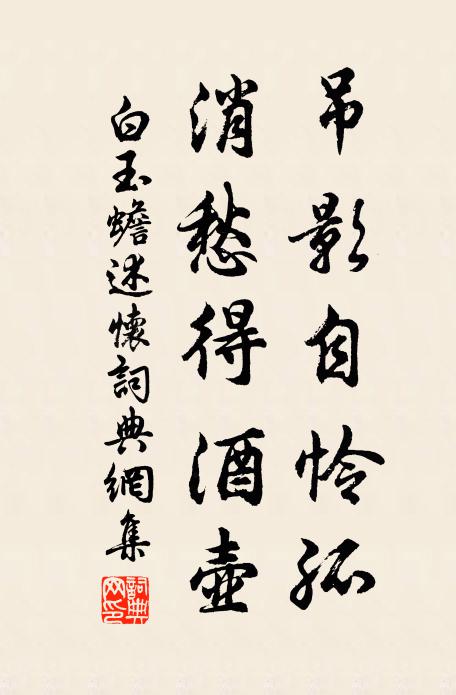 吊影自怜孤
消愁得酒壶
白玉蟾述懷詞典網集
詞典
网印